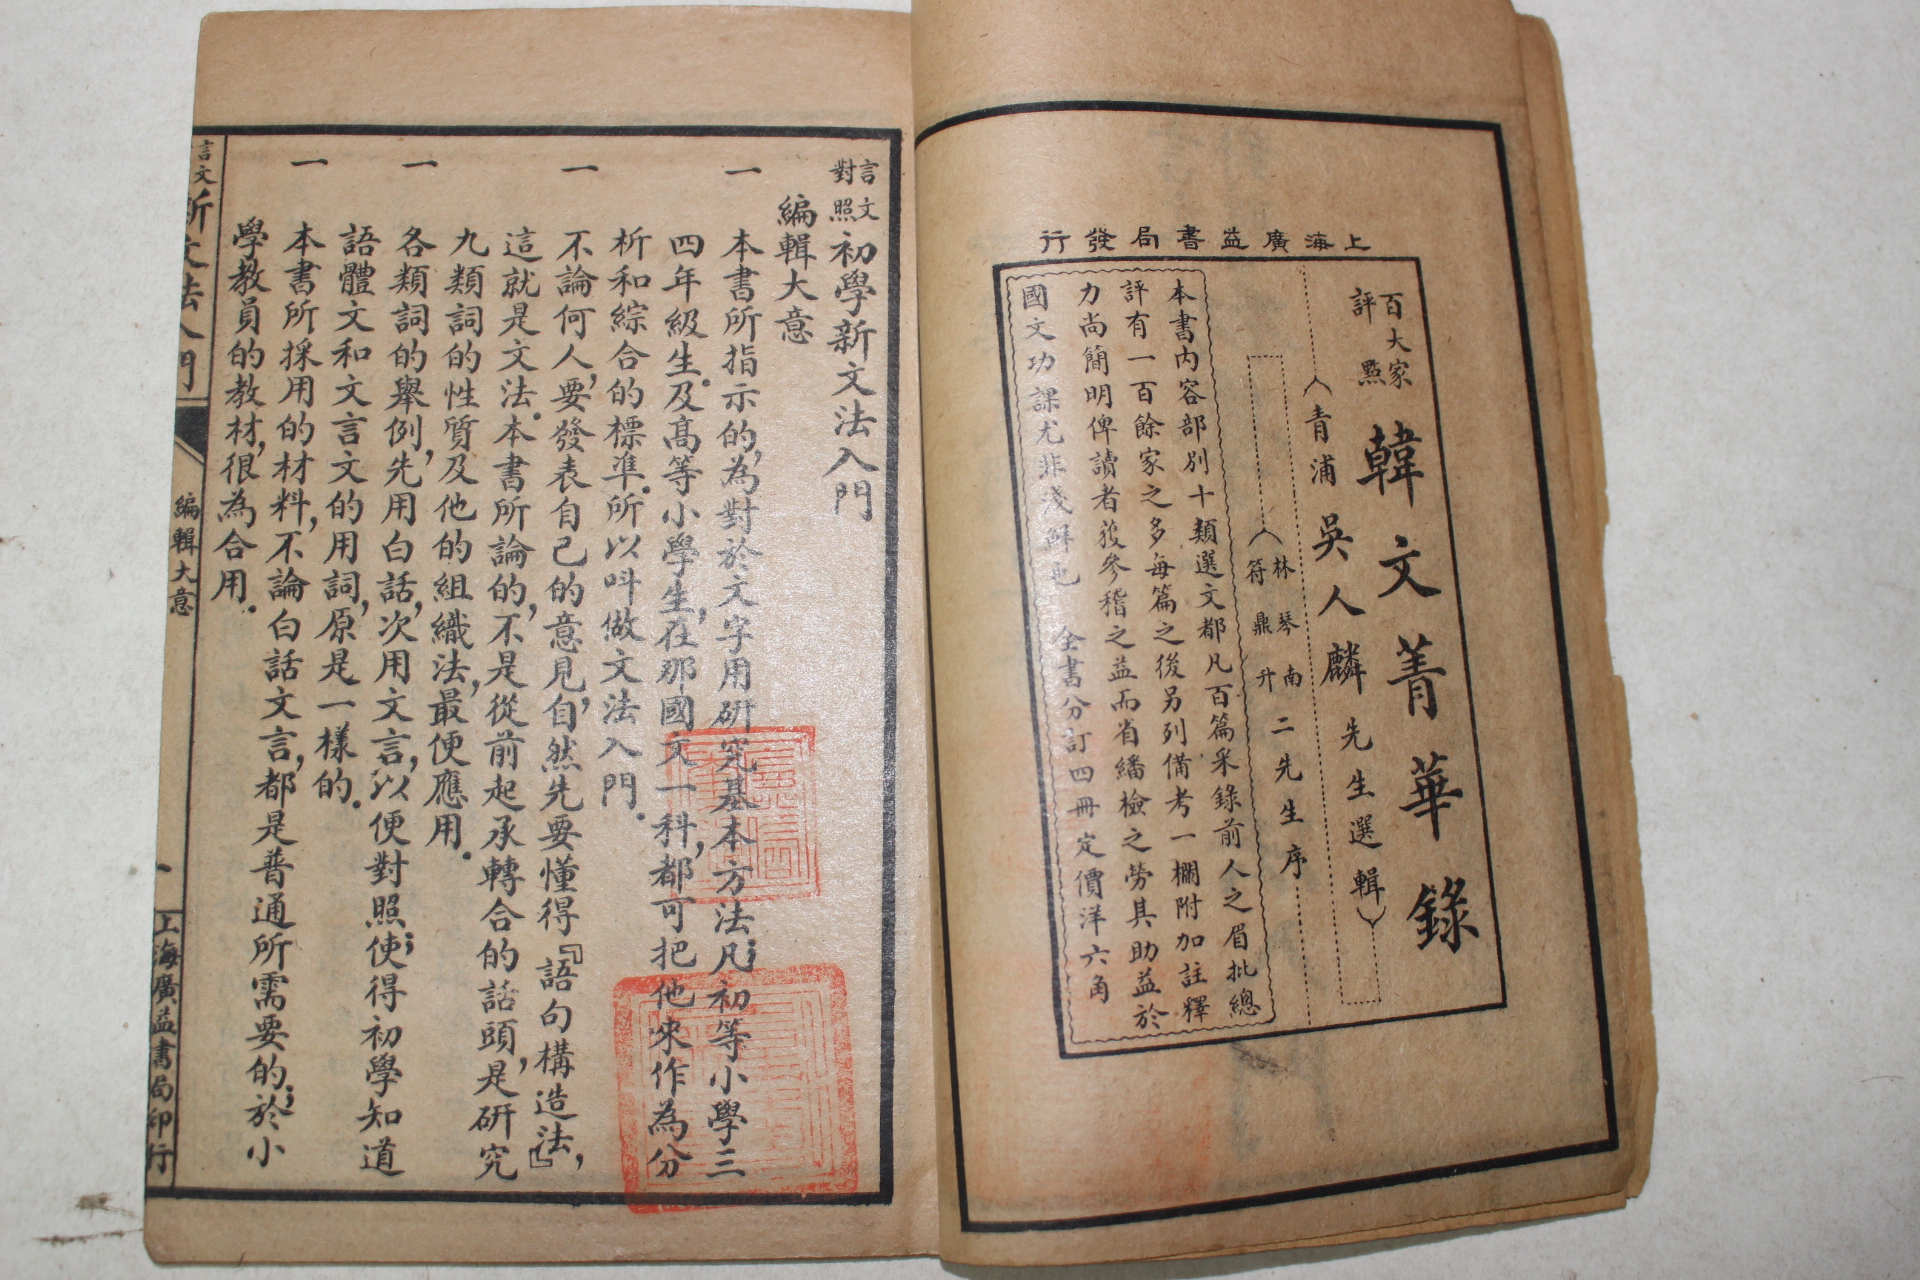 上海廣益書局發行
百大家評點
韓文菁華錄
青浦吳人麟先生選輯
林琴南
符鼎升
二先生序
本書內容部別十類選文都凡百篇采錄前人之眉批總
評有一百餘家之多每篇之後另列備考一欄附加註釋
力尚簡明俾讀者獲參稽之益而省繙檢之勞其助益於
國文功課尤非淺鮮也 全書分訂四冊定價洋六角
言文對照
初學新文法入門
編輯大意
一 本書所指示的,為對於文字用研究基本方法;凡初等小學三
四年級生。及高等小學生,在那國文一科,都可把他來作為分
析和綜合的標準。所以呌做文法入門.
一 不論何人,要發表自己的意見,自然先要懂得『語句構造法,』
這就是文法.本書所論的,不是從前起承轉合的話頭,是研究
九類詞的性質及他的組織法,最便應用.
一 各類詞的舉例,先用白話,次用文言,以便對照;使得初學知道
語體文和文言文的用詞,原是一樣的.
一 本書所採用的材料,不論白話文言,都是普通所需要的;於小
學教員的教材,很為合用.
言文
新文法入門
編輯大意
上海廣益書局印行